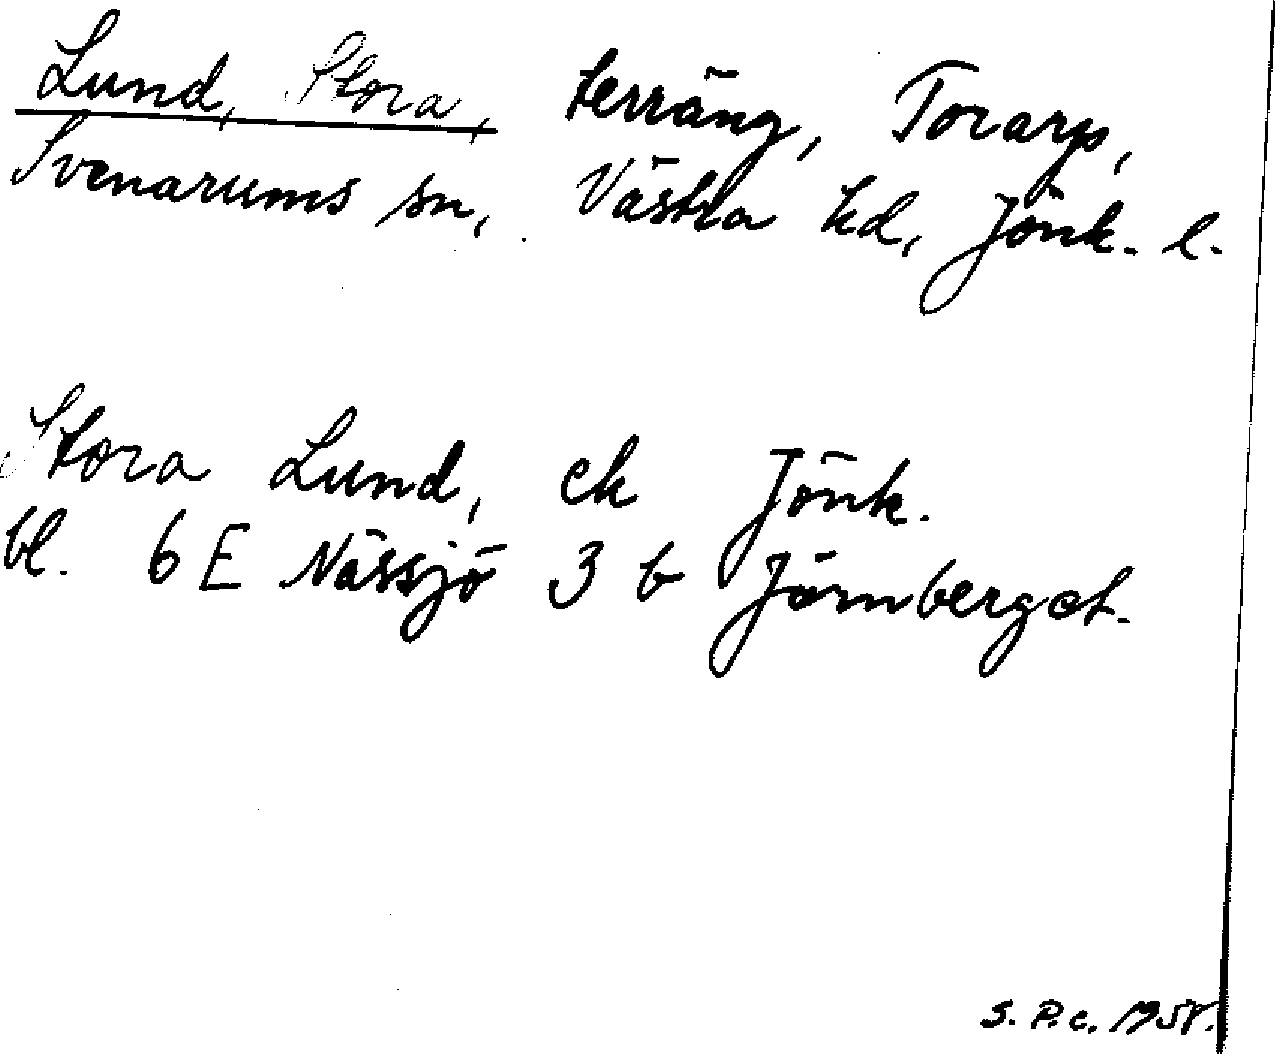 Lund, Stora, terräng, Torarp,
Svenarums sn, Västra hd, Jönk. l.
Stora Lund, ek Jönk.
bl. 6 E Nässjö 3 b Järnberget.
S. P. c.